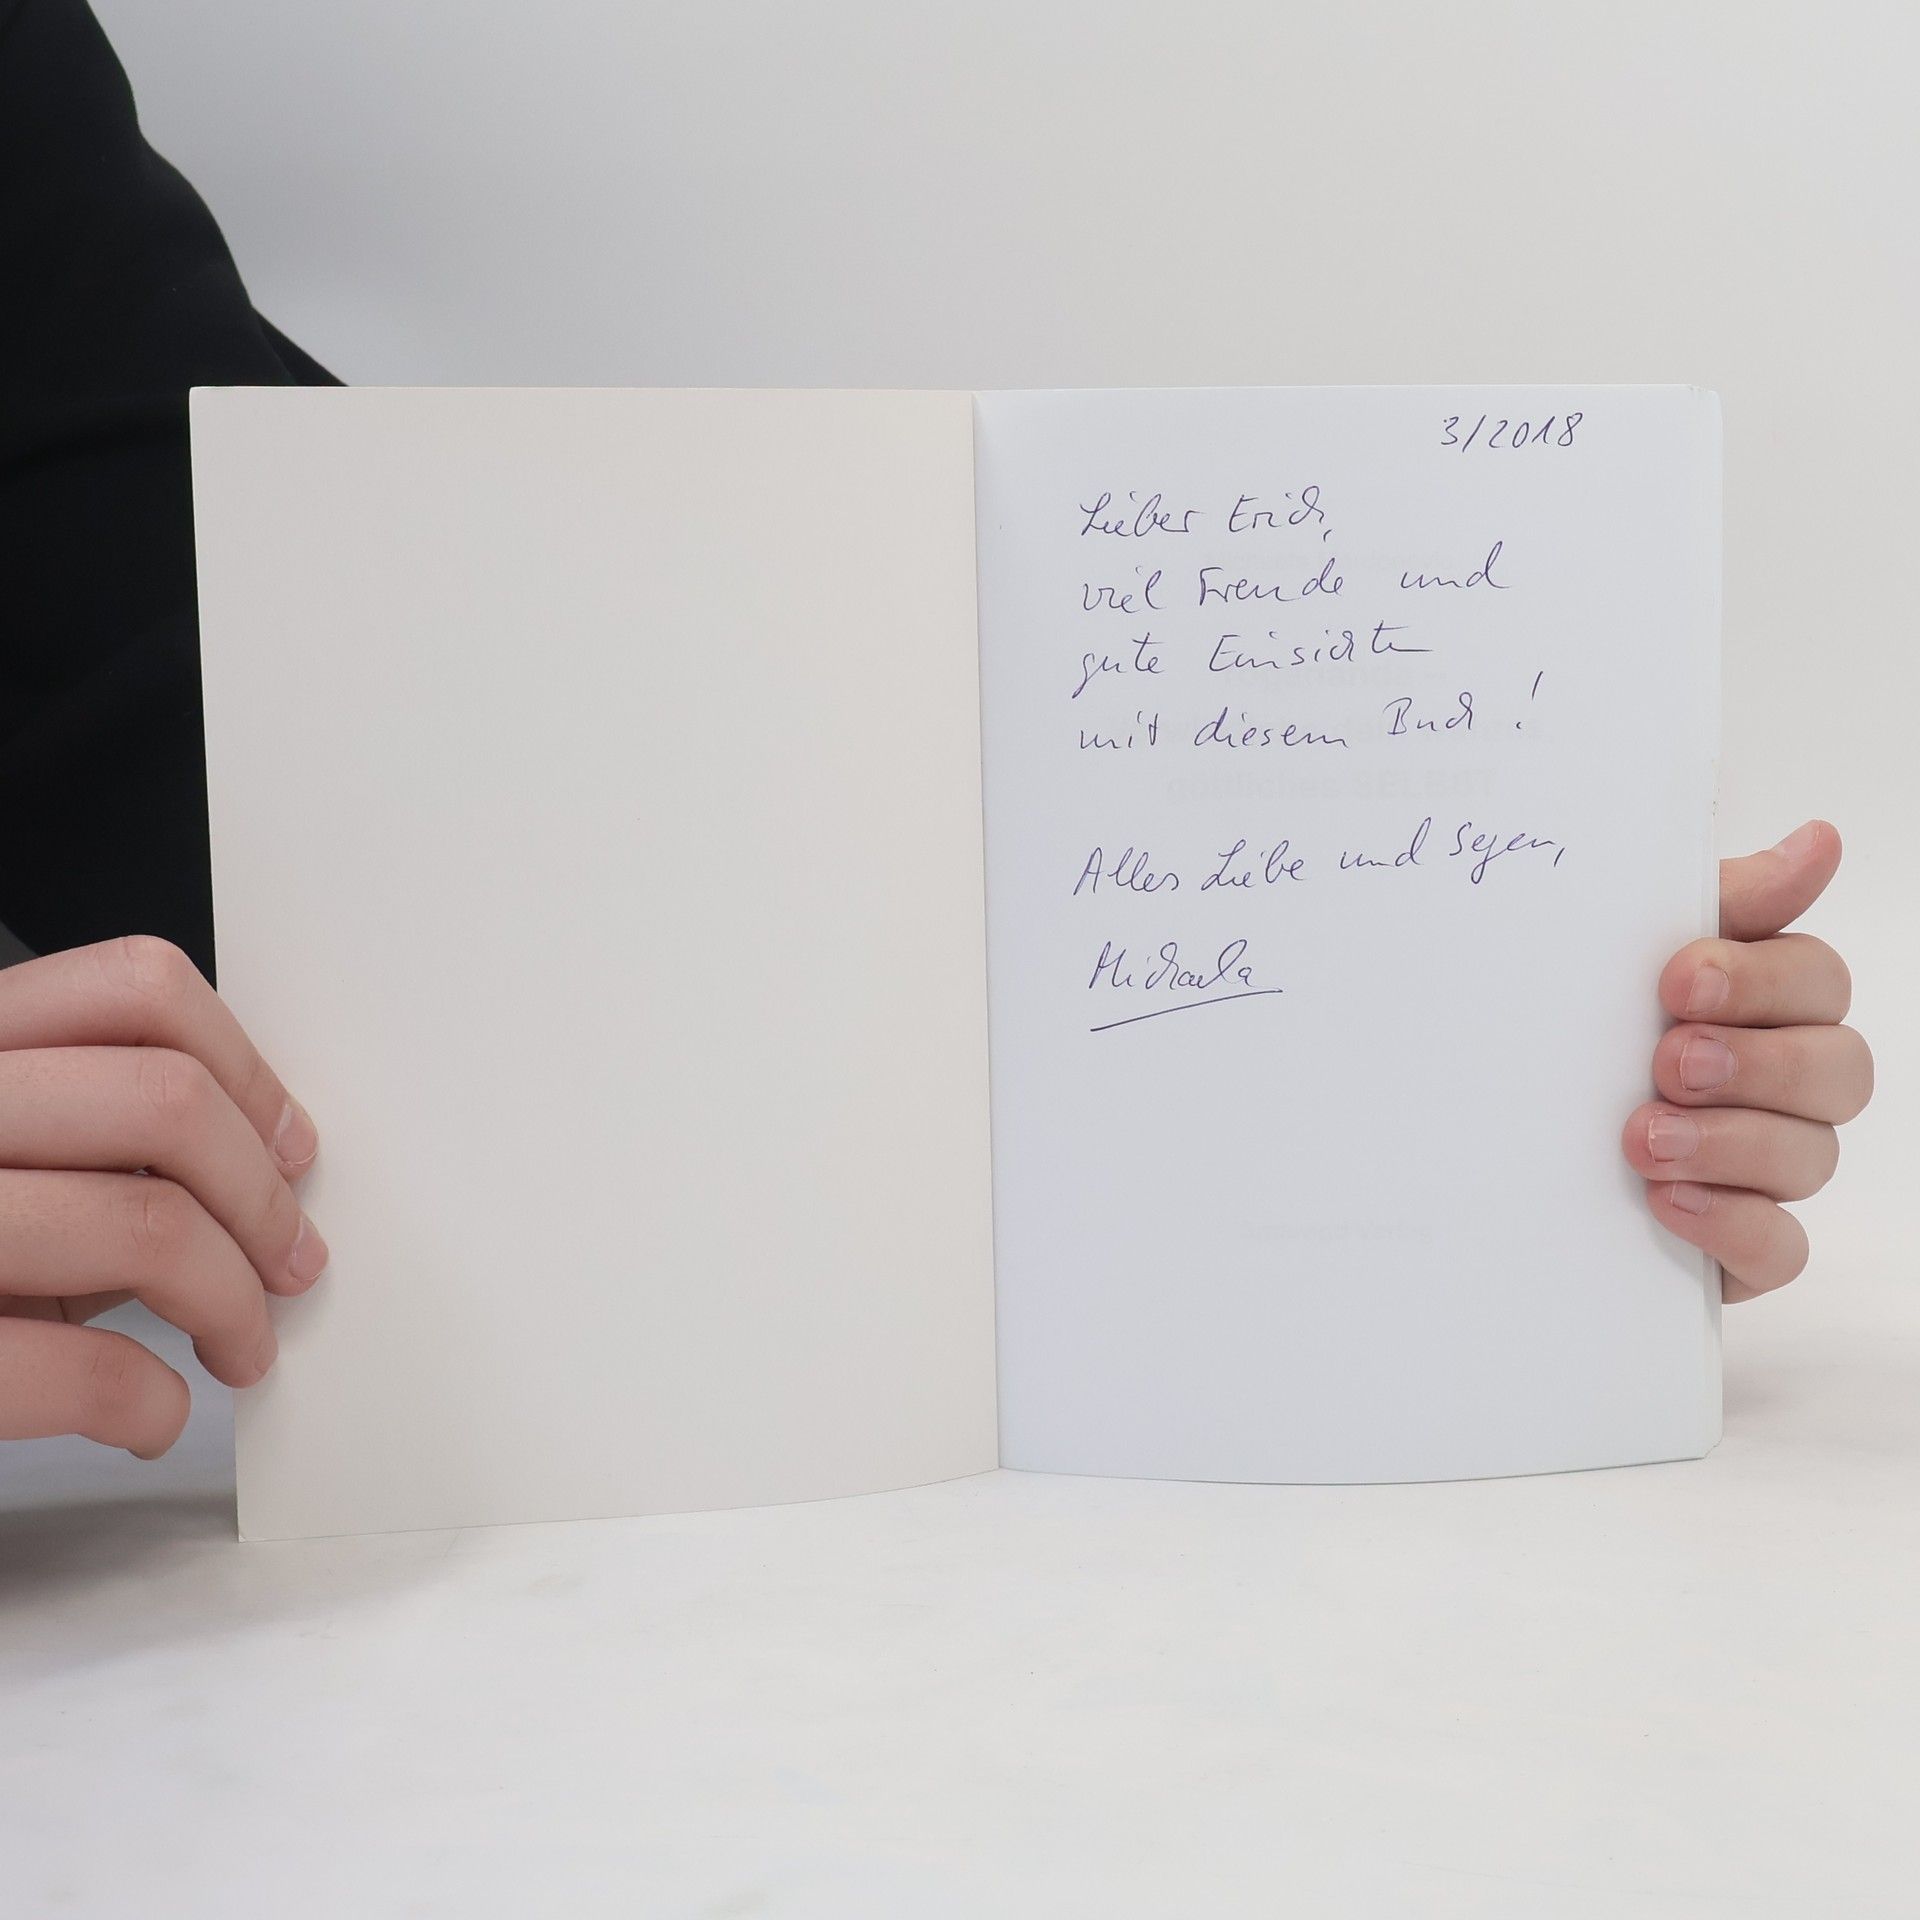 3/2018
Lieber Erich,
viel Freude und
gute Einsichten
mit diesem Buch!
göttliches SELBST
Alles Liebe und Segen,
Michaela